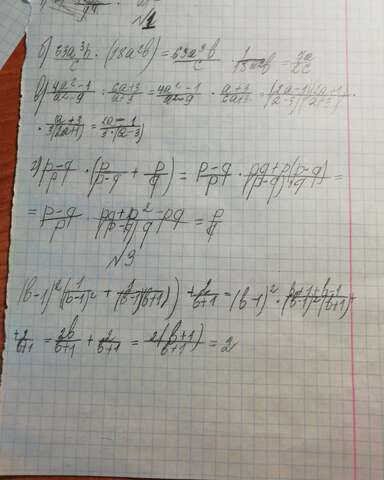 №1
б) 53a³b/c : (18a²b) = 63a³b/c · 1/18a²b = 7a/2c
в) 4a²-1/a²-9 : 6a+3/a+3 = 4a²-1/a²-9 · a+3/6a+3 = (2a-1)(2a+1)/(a-3)(a+3) ·
· a+3/3(2a+1) = 2a-1/3·(a-3)
г) p-q/p · (p/p-q + p/q) = p-q/p · pq+p(p-q)/(p-q)q =
= p-q/p · pq+p²-pq/(p-q)q = p/q
№3
(b-1)²(1/(b-1)² + 1/(b-1)(b+1)) + 2/b+1 = (b-1)² · b+1+b-1/(b-1)²(b+1) +
+ 2/b+1 = 2b/b+1 + 2/b+1 = 2(b+1)/b+1 = 2